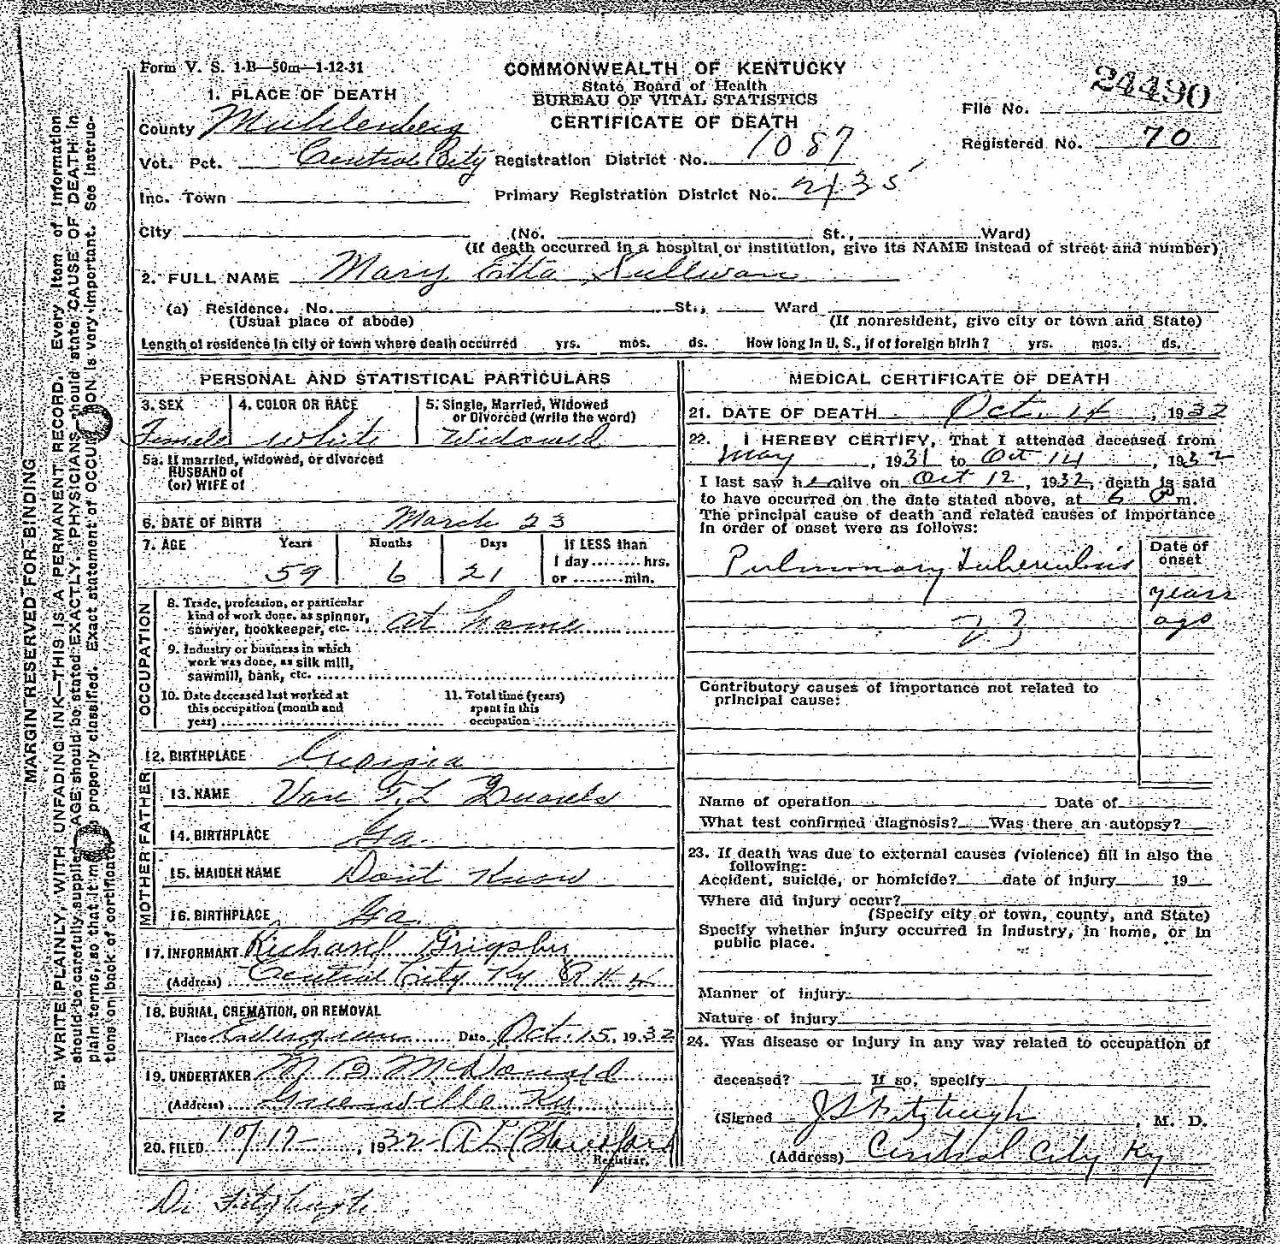 Form V. S. 1-B—50m—1-12-31
COMMONWEALTH OF KENTUCKY
State Board of Health
BUREAU OF VITAL STATISTICS
CERTIFICATE OF DEATH
File No. 24490
Registered No. 70
1. PLACE OF DEATH
County Muhlenberg
Vot. Pct. Central City Registration District No. 1087
Inc. Town Primary Registration District No. 2135
City (No. St., Ward)
(If death occurred in a hospital or institution, give its NAME instead of street and number)
2. FULL NAME Mary Etta Sullivan
(a) Residence. No. St., Ward
(Usual place of abode) (If nonresident, give city or town and State)
Length of residence in city or town where death occurred yrs. mos. ds. How long in U. S., if of foreign birth? yrs. mos. ds.
PERSONAL AND STATISTICAL PARTICULARS
3. SEX 4. COLOR OR RACE 5. Single, Married, Widowed
or Divorced (write the word)
Female White Widowed
5a. If married, widowed, or divorced
HUSBAND of
(or) WIFE of
6. DATE OF BIRTH March 23
7. AGE Years Months Days If LESS than
1 day........ hrs.
59 6 21 or ........min.
OCCUPATION
8. Trade, profession, or particular
kind of work done, as spinner,
sawyer, bookkeeper, etc. at home
9. Industry or business in which
work was done, as silk mill,
sawmill, bank, etc.
10. Date deceased last worked at 11. Total time (years)
this occupation (month and spent in this
year) occupation
12. BIRTHPLACE Georgia
FATHER
13. NAME Van T. L
14. BIRTHPLACE Ga.
MOTHER
15. MAIDEN NAME Don't Know
16. BIRTHPLACE Ga.
17. INFORMANT Richard Grigsby
(Address) Central City Ky R # 4
18. BURIAL, CREMATION, OR REMOVAL
Place Date Oct. 15, 1932
19. UNDERTAKER M B McDonald
(Address) Greenville Ky
20. FILED 10/17, 1932 A L
Registrar.
Dr. Fitzhugh
MEDICAL CERTIFICATE OF DEATH
21. DATE OF DEATH Oct. 14, 1932
22. I HEREBY CERTIFY, That I attended deceased from
May, 1931 to Oct 14, 1932
I last saw her alive on Oct 12, 1932, death is said
to have occurred on the date stated above, at 6 m.
The principal cause of death and related causes of importance
in order of onset were as follows:
Date of
onset
Pulmonary Tuberculosis
years
ago
23
Contributory causes of importance not related to
principal cause:
Name of operation Date of
What test confirmed diagnosis? Was there an autopsy?
23. If death was due to external causes (violence) fill in also the
following:
Accident, suicide, or homicide? date of injury 19
Where did injury occur?
(Specify city or town, county, and State)
Specify whether injury occurred in industry, in home, or in
public place.
Manner of injury
Nature of injury
24. Was disease or injury in any way related to occupation of
deceased? If so, specify
(Signed J S Fitzhugh, M. D.
(Address) Central City Ky
MARGIN RESERVED FOR BINDING
N. B. WRITE PLAINLY, WITH UNFADING INK—THIS IS A PERMANENT RECORD. Every item of information
should be carefully supplied. AGE should be stated EXACTLY. PHYSICIANS should state CAUSE OF DEATH in
plain terms, so that it may be properly classified. Exact statement of OCCUPATION is very important. See instruc-
tions on back of certificate.